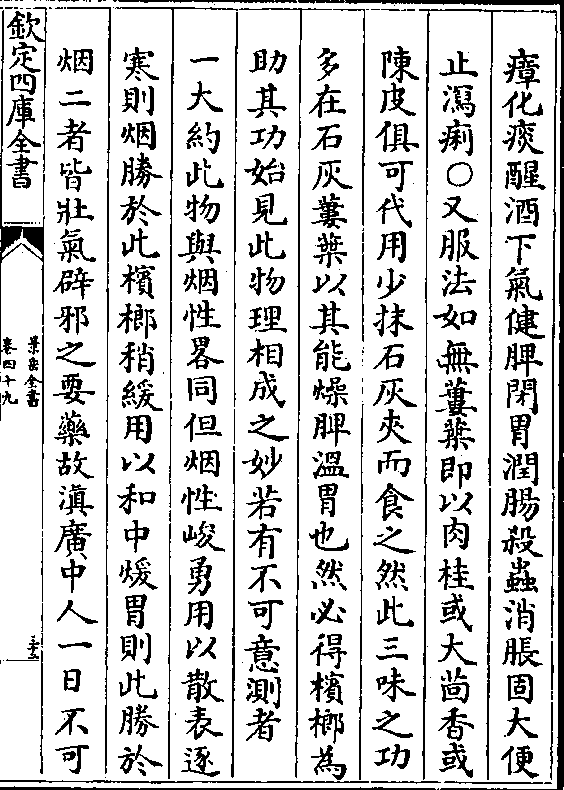 瘴化痰醒酒下氣健脾開胃潤腸殺蟲消脹固大便
止瀉痢〇又服法如無蔞葉即以肉桂或大茴香或
陳皮俱可代用少抹石灰夾而食之然此三味之功
多在石灰蔞葉以其能燥脾溫胃也然必得檳榔為
助其功始見此物理相成之妙若有不可意測者
一大約此物與烟性畧同但烟性峻勇用以散表逐
寒則烟勝於此檳榔稍緩用以和中煖胃則此勝於
烟二者皆壯氣辟邪之要藥故滇廣中人一日不可
欽定四庫全書
景岳全書
卷四十九